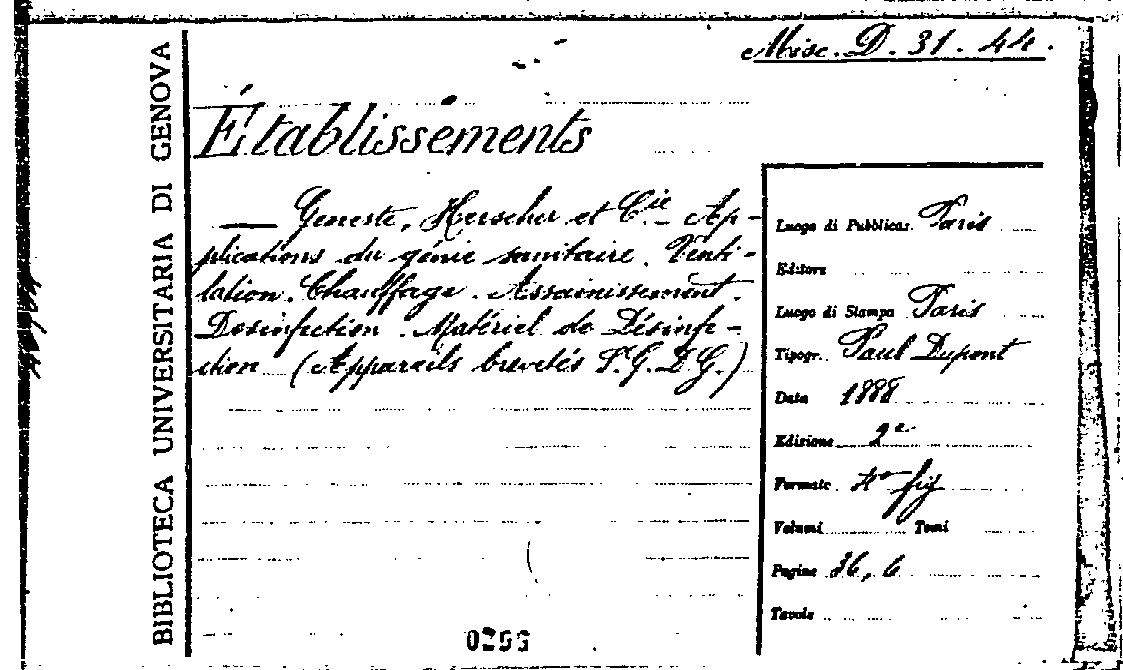 Misc. D. 31. 44.
BIBLIOTECA UNIVERSITARIA DI GENOVA
Établissements
— Geneste, Herscher et Cie. Ap-
plications du génie sanitaire. Venti-
lation. Chauffage. Assainissement.
Desinfection. Matériel de Désinfe-
ction (Appareils brevetés S.G.D.G.)
Luogo di Pubblicaz. Paris
Editore
Luogo di Stampa Paris
Tipogr. Paul Dupont
Data 1888
Edizione 2e
Formato 4° fig
Volumi Tomi
Pagine 36, 6
Tavole